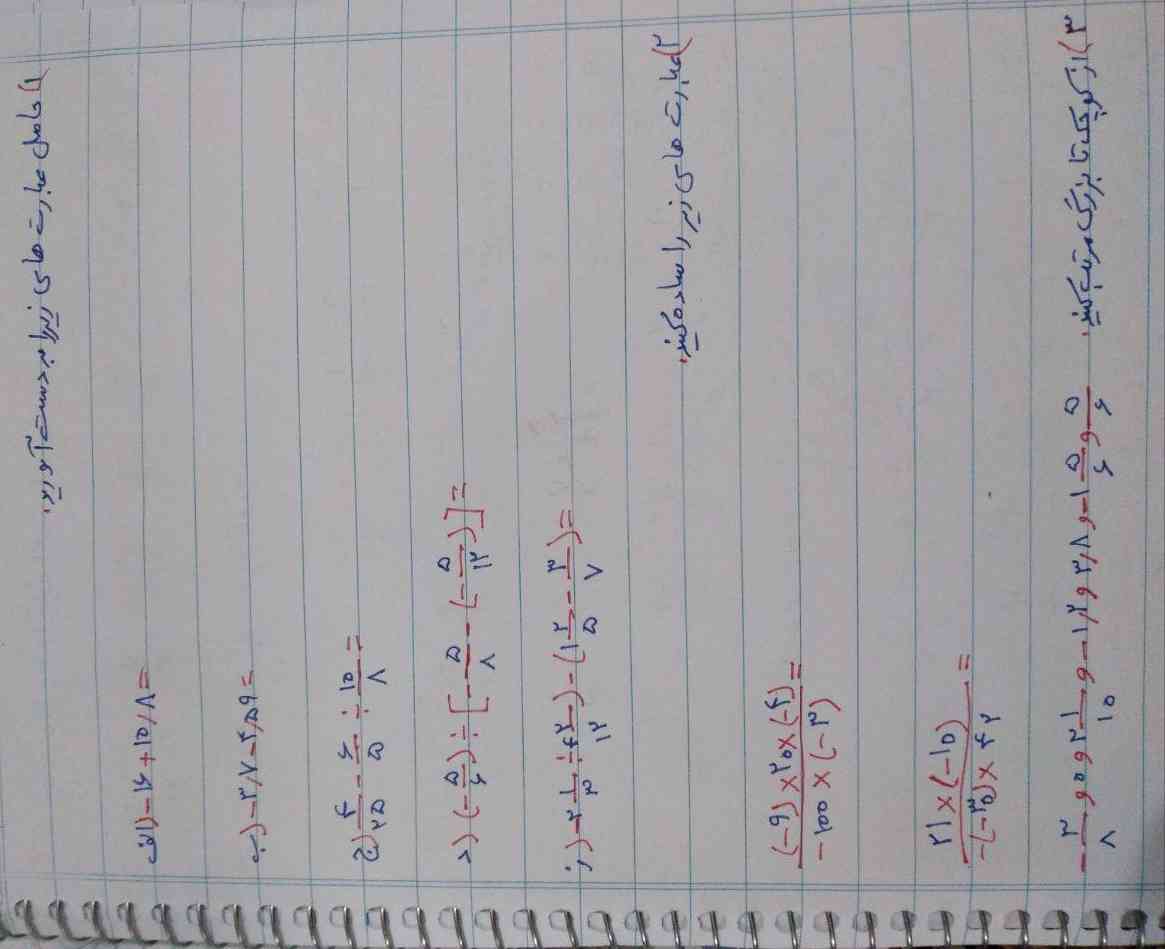 ۱) حاصل عبارت های زیر را به دست آورید.
الف) -۱۶ + ۱۵/۸ =
ب) -۲/۷ - ۴/۵۹ =
ج) ۴/۲۵ - ۶/۵ ÷ ۱۵/۸ =
د) (-۵/۶) ÷ [-۵/۸ - (-۵/۱۲)] =
ز) -۲ ۱/۳ ÷ ۴۲/۱۲) - (۱ ۲/۵ - ۳/۷) =
۲) عبارت های زیر را ساده کنید.
(-۹) × ۲۰ × (-۴) / -۱۰۰ × (-۳) =
۲۱ × (-۱۰) / -(-۳۵) × ۴۲ =
۳) از کوچک تا بزرگ مرتب کنید. -۲/۸ و ۰ و ۲ ۱/۱۰ و -۱/۲ و ۳/۸ و -۱ ۵/۶ و ۵/۶